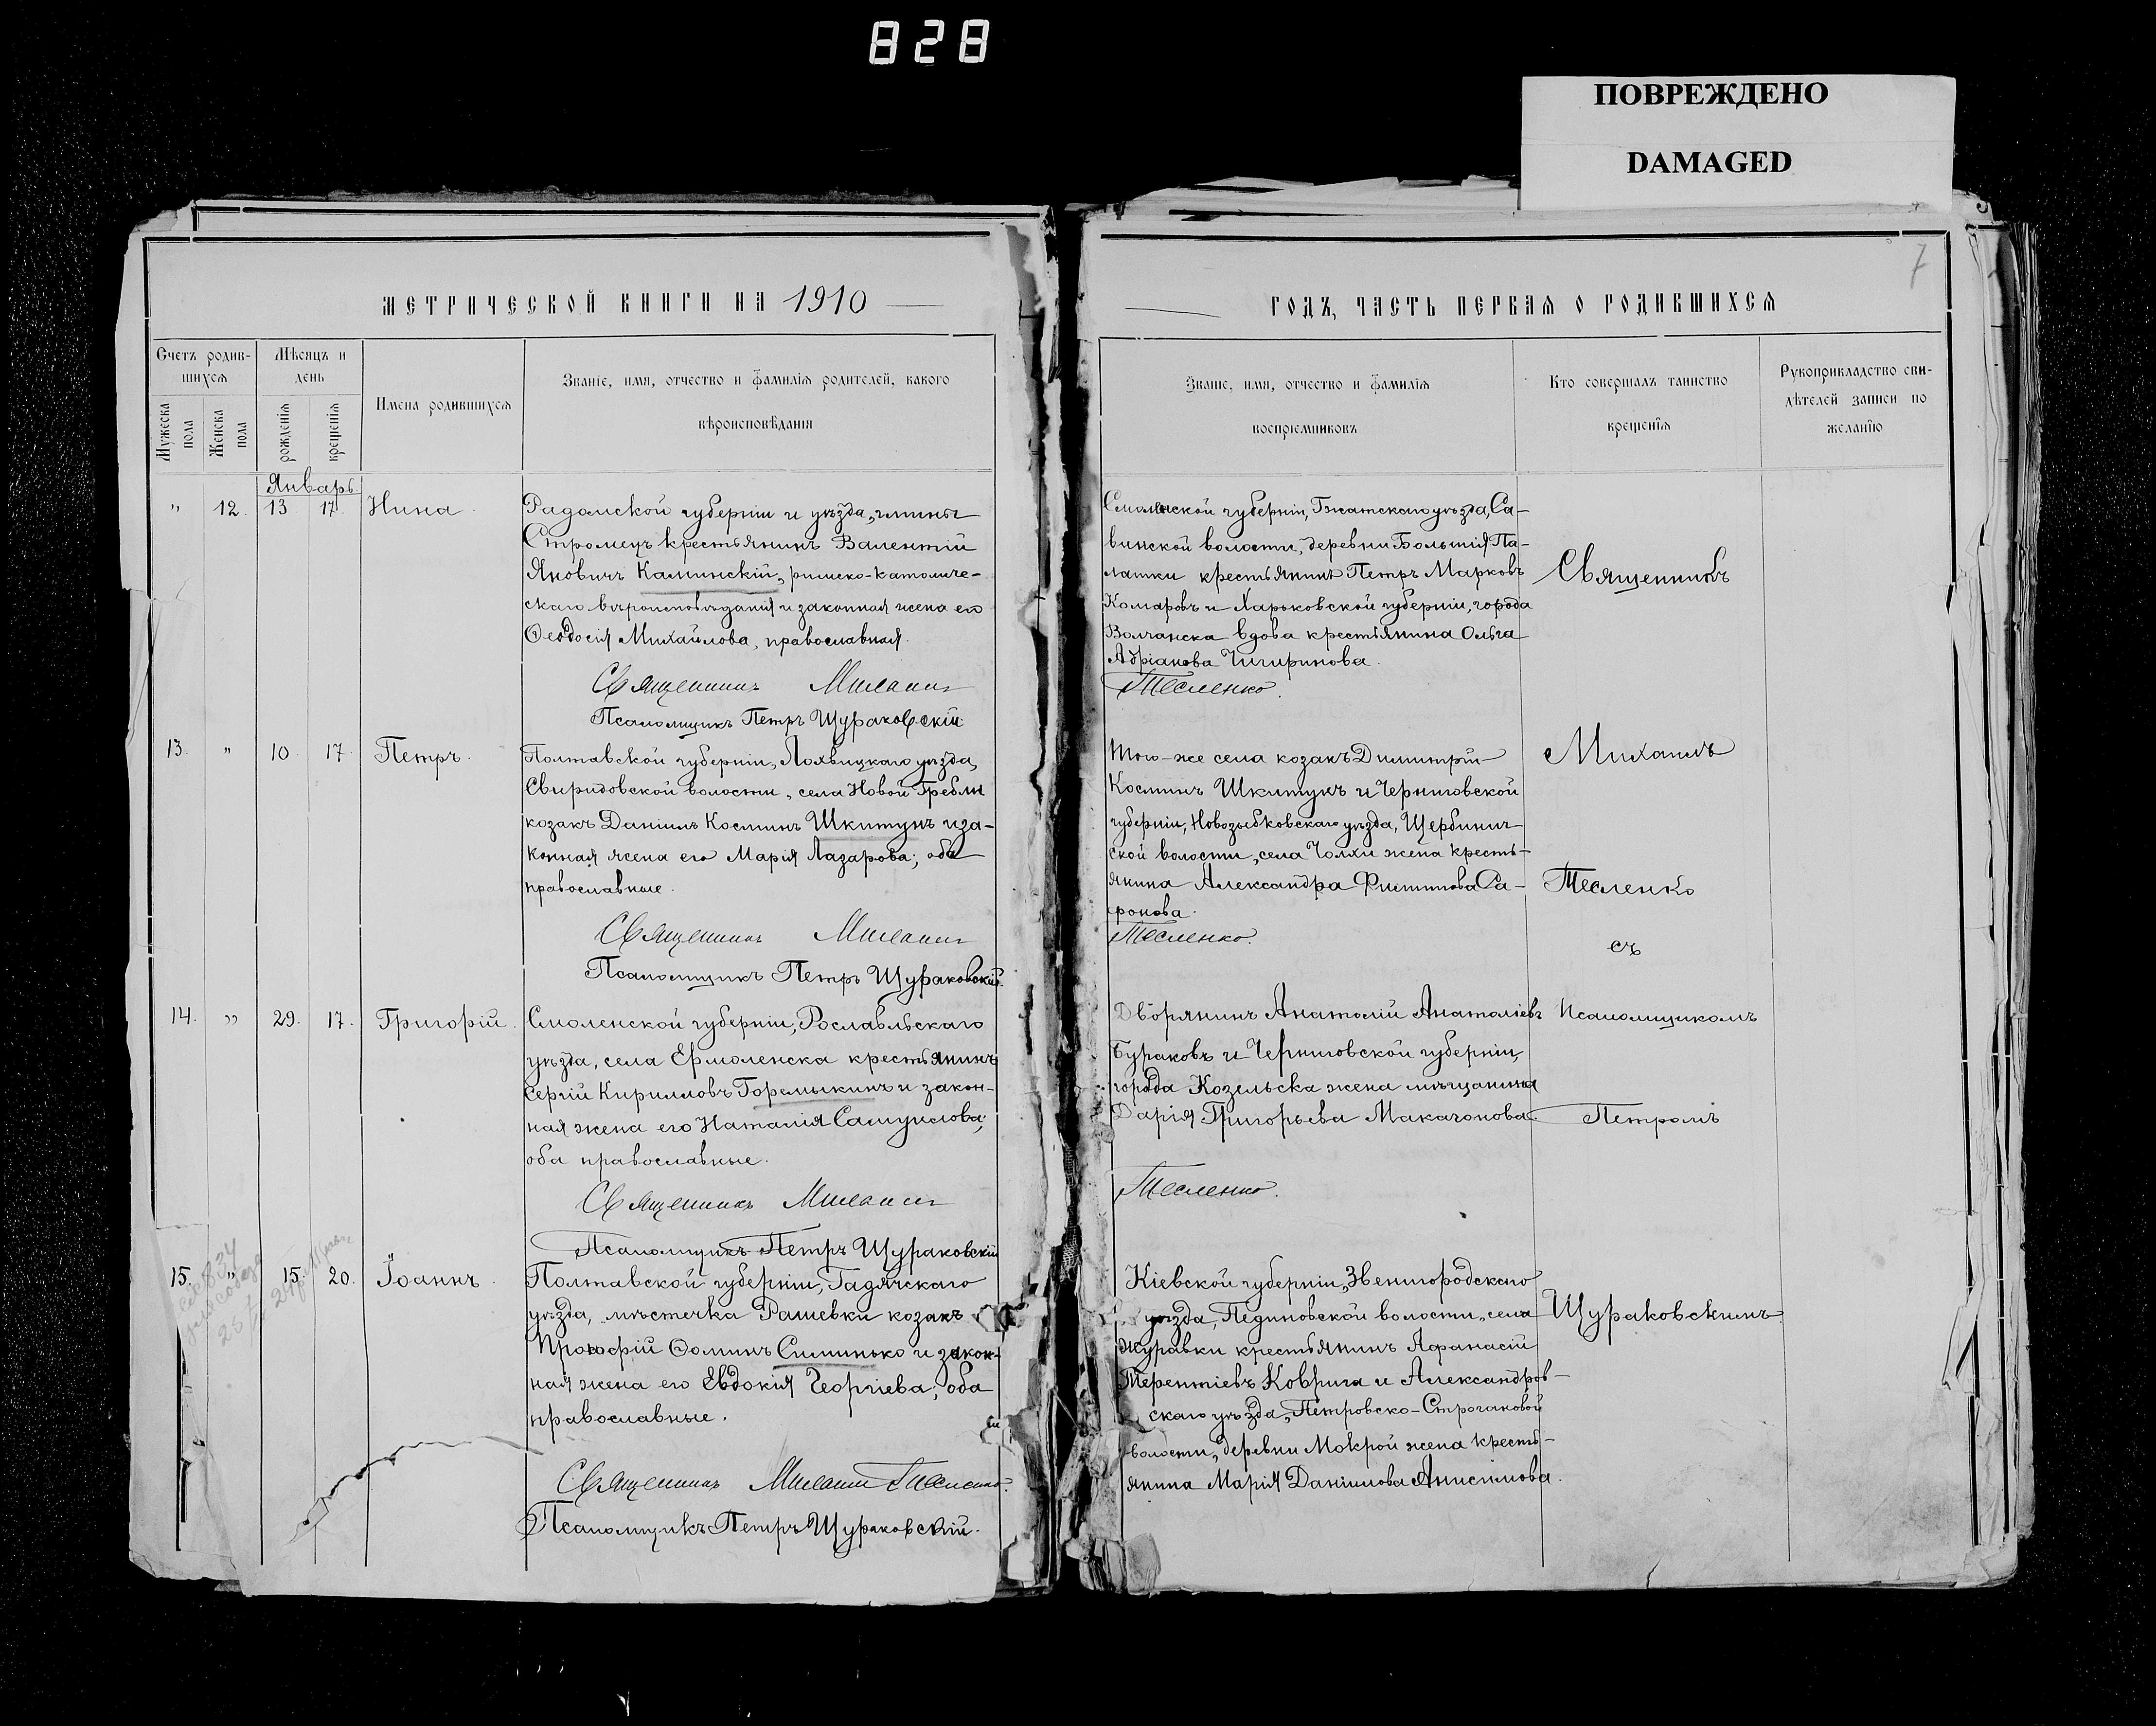 828
ПОВРЕЖДЕНО
DAMAGED
7
МЕТРИЧЕСКОЙ КНИГИ НА 1910
Счетъ родив-
шихся
Мѣсяцъ и
день
Мужеска
пола
Женска
пола
рожденія
крещенія
Имена родившихся
Званіе, имя, отчество и фамилія родителей, какого
вѣроисповѣданія
Январь
" 12. 13. 17. Нина.
Радомской губерніи и уѣзда, гмины
Стромецъ крестьянинъ Валентій
Яновичъ Каминскій, римско-католиче-
скаго вѣроисповѣданія и законная жена его
Ѳеодосія Михайлова, православная.
Священникъ Михаилъ
Псаломщикъ Петръ Щураковскій
13. " 10. 17. Петръ.
Полтавской губерніи, Лохвицкаго уѣзда,
Свиридовской волости, села Новой Гребли
козакъ Даніилъ Косминъ Шкитунъ и за-
конная жена его Марія Лазарова; оба
православные.
Священникъ Михаилъ
Псаломщикъ Петръ Щураковскій.
14. " 29. 17. Григорій.
Смоленской губерніи, Рославльскаго
уѣзда, села Ермоленска крестьянинъ
Сергій Кирилловъ Горемыкинъ и закон-
ная жена его Наталія Самуилова;
оба православные.
Священникъ Михаилъ
Псаломщикъ Петръ Щураковскій
15. " 15. 20. Іоаннъ.
Полтавской губерніи, Гадячскаго
уѣзда, мѣстечка Рашевки козакъ
Прокофій Ѳоминъ Симинько и закон-
ная жена его Евдокія Георгіева; оба
православные.
Священникъ Михаилъ Тесленко.
Псаломщикъ Петръ Щураковскій.
ГОДЪ, ЧАСТЬ ПЕРВАЯ О РОДИВШИХСЯ
Званіе, имя, отчество и фамилія
воспріемниковъ
Кто совершалъ таинство
крещенія
Рукоприкладство сви-
дѣтелей записи по
желанію
Смоленской губерніи, Гжатскаго уѣзда, Са-
винской волости, деревни Большія Па-
латки крестьянинъ Петръ Марковъ
Комаровъ и Харьковской губерніи, города
Волчанска вдова крестьянина Ольга
Адріанова Чигиринова.
Тесленко.
Того-же села козакъ Димитрій
Косминъ Шкитунъ и Черниговской
губерніи, Новозыбковскаго уѣзда, Щербинич-
ской волости, села Чолхи жена кресть-
янина Александра Филиппова Са-
фонова.
Тесленко.
Дворянинъ Анатолій Анатоліевъ
Бураковъ и Черниговской губерніи,
города Козельска жена мѣщанина
Дарія Григорьева Макачонова
Тесленко.
Кіевской губерніи, Звенигородскаго
уѣзда, Пединовской волости, села
Журавки крестьянинъ Афанасій
Терентіевъ Коврига и Александров-
скаго уѣзда, Петровско-Строгановой
волости, деревни Мокрой жена кресть-
янина Марія Даніилова Анисимова.
Священникъ
Михаилъ
Тесленко
съ
Псаломщикомъ
Петромъ
Щураковскимъ